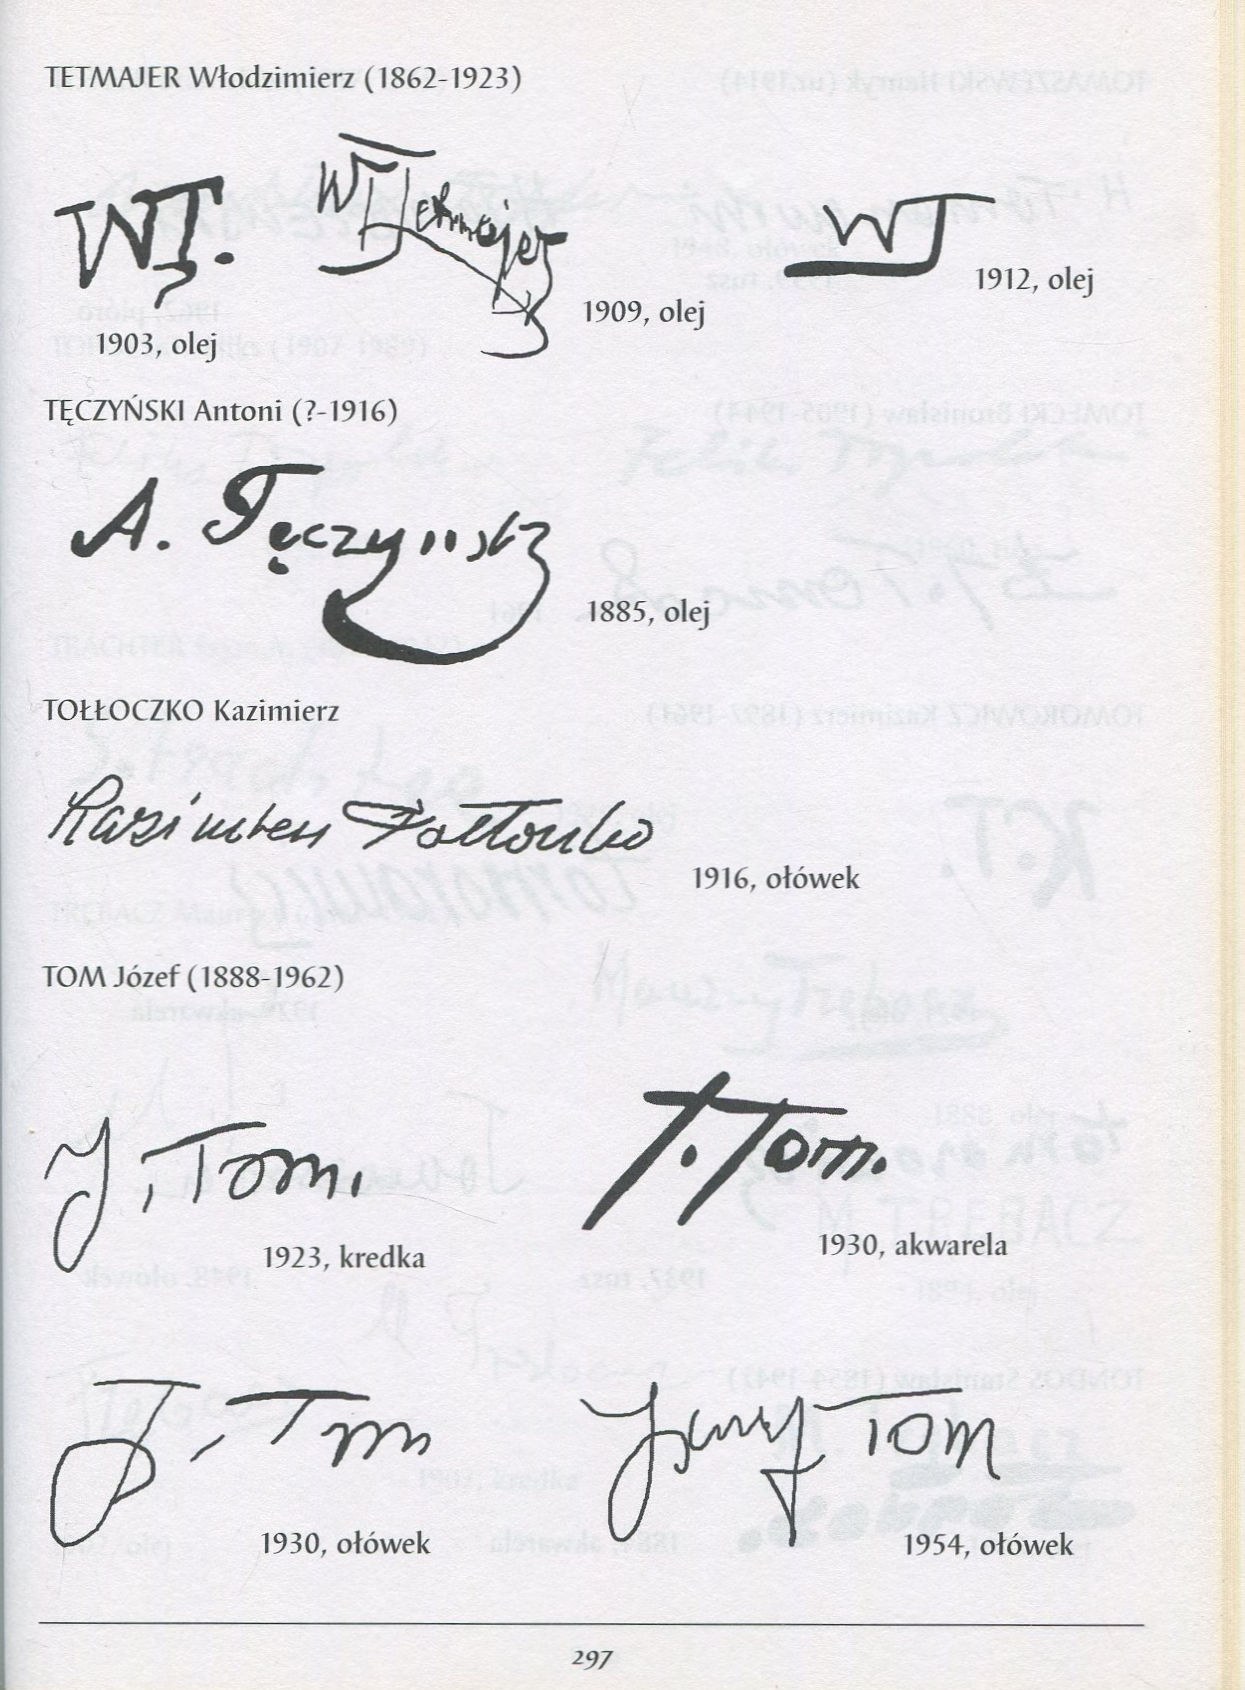 TETMAJER Włodzimierz (1862-1923)
WT.
WTetmajer
WT
1903, olej
1909, olej
1912, olej
TĘCZYŃSKI Antoni (?-1916)
A. Tęczyński
1885, olej
TOŁŁOCZKO Kazimierz
Kazimierz Tołłoczko
1916, ołówek
TOM Józef (1888-1962)
J. Tom.
1923, kredka
J. Tom.
1930, akwarela
J. Tom
1930, ołówek
Józef Tom
1954, ołówek
297